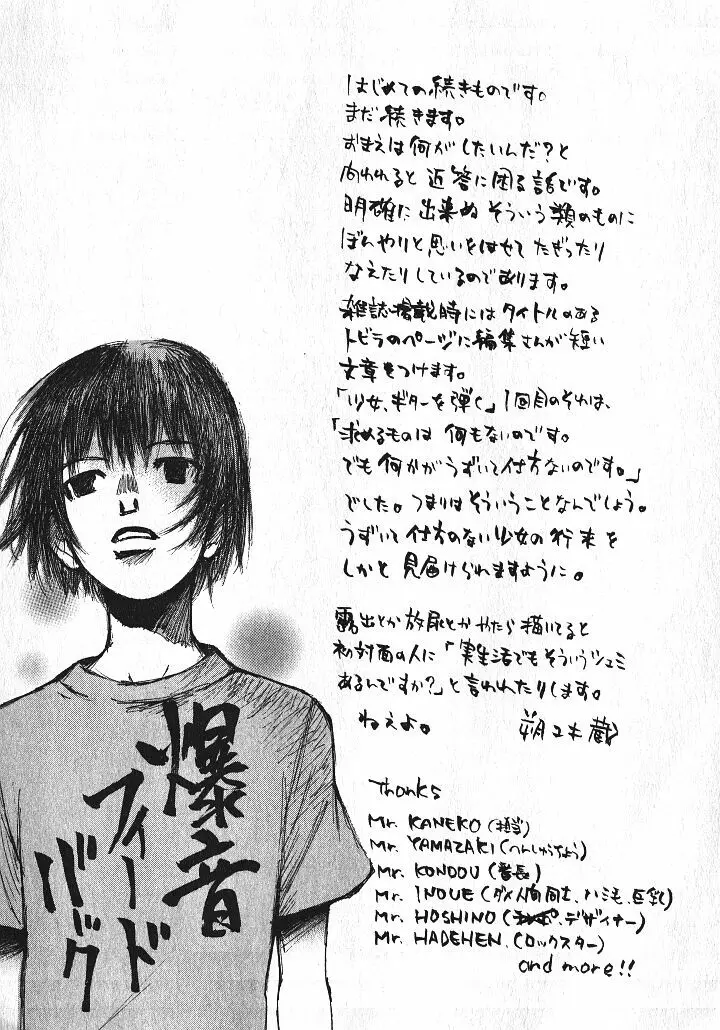 はじめての続きものです。
まだ続きます。
おまえは何がしたいんだ?と
問われると返答に困る話です。
明確に出来ぬそういう類のものに
ぼんやりと思いをはせてたぎったり
なえたりしているのであります。
雑誌掲載時にはタイトルのある
トビラのページに編集さんが短い
文章をつけます。
「少女、ギターを弾く」1回目のそれは、
「求めるものは何もないのです。
でも何かがうずいて仕方ないのです。」
でした。つまりはそういうことなんでしょう。
うずいて仕方のない少女の行末を
しかと見届けられますように。
露出とか放尿とかやたら描いてると
初対面の人に「実生活でもそういうシュミ
あるんですか?」と言われたりします。
ねえよ。 朔ユキ蔵
Thanks
Mr. KANEKO (担当)
Mr. YAMAZAKI (へんしゅうちょう)
Mr. KONDOU (番長)
Mr. INOUE (ダメ人間同士、ハミ毛、巨乳)
Mr. HOSHINO (デザイナー)
Mr. HADEHEN (ロックスター)
and more!!
爆音
フィードバック